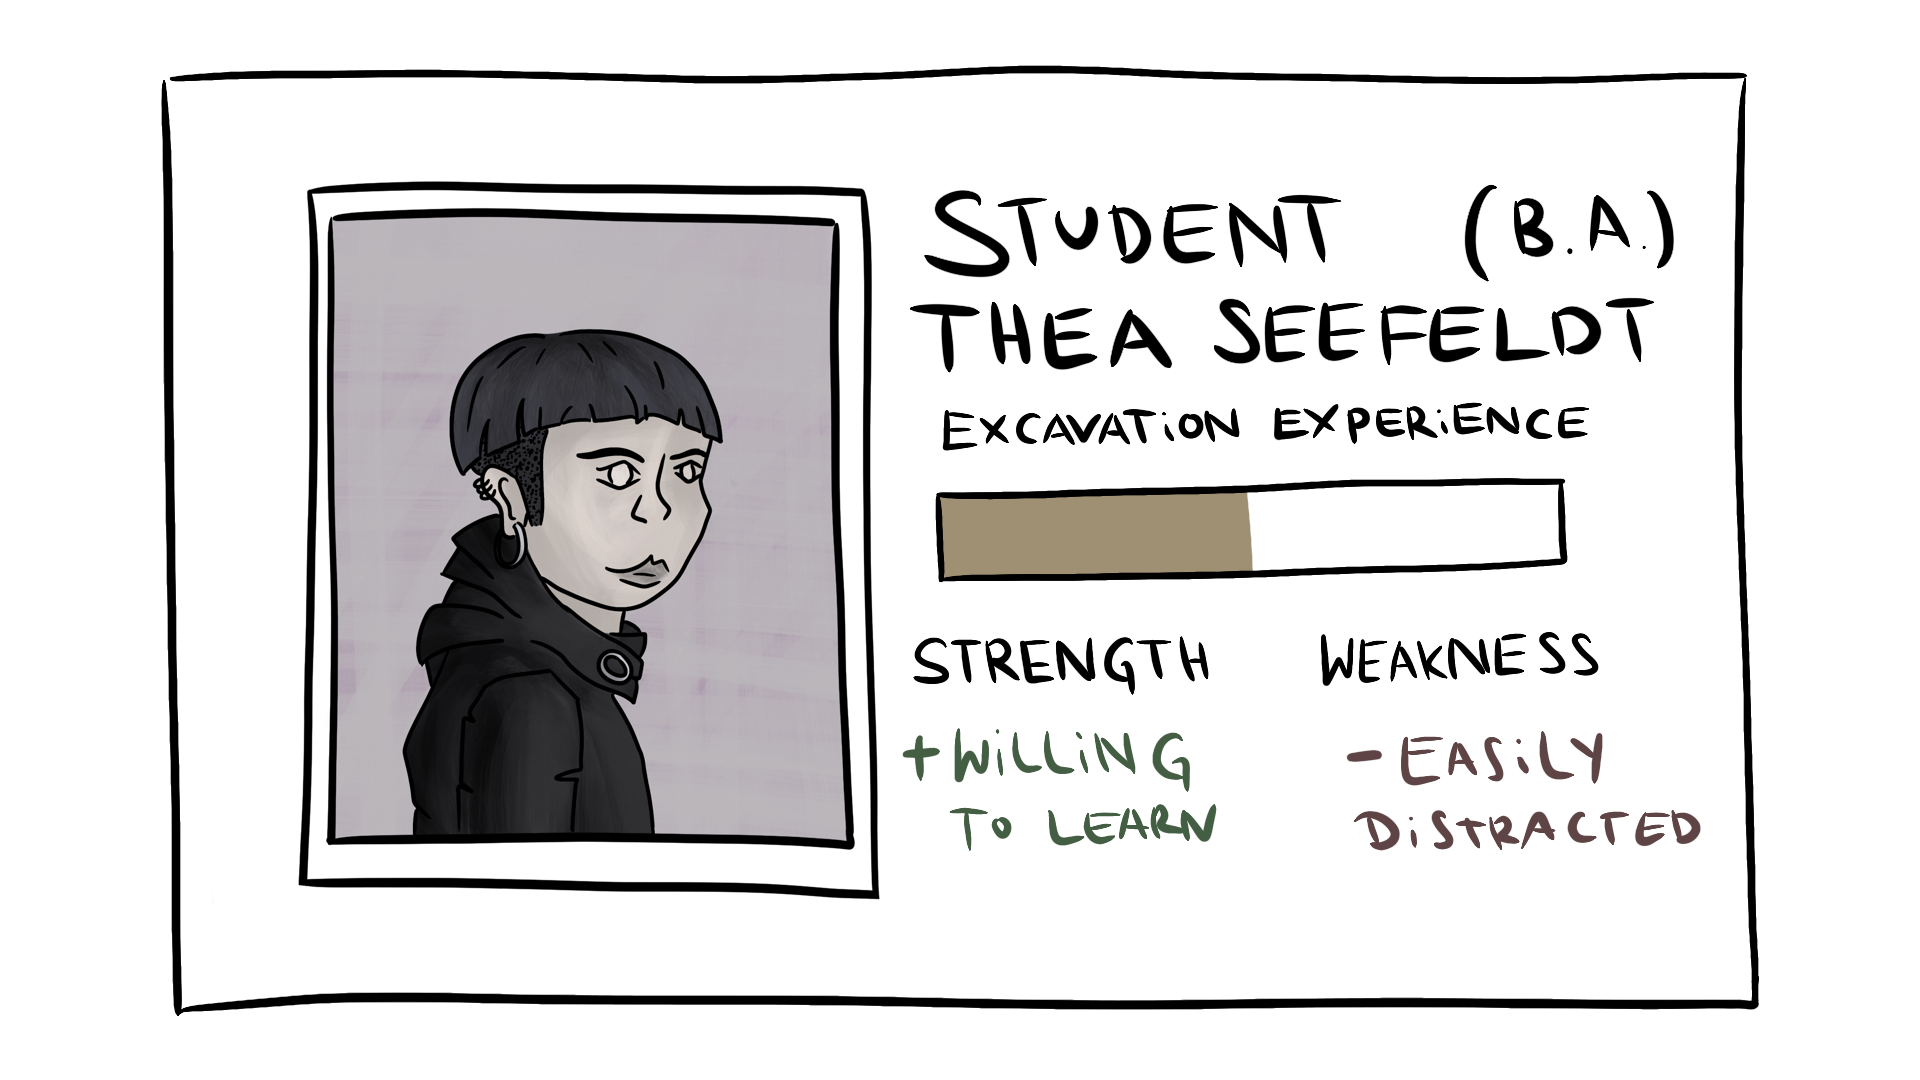 STUDENT (B.A.)
THEA SEEFELDT
EXCAVATION EXPERIENCE
STRENGTH WEAKNESS
+ WILLING
TO LEARN
- EASILY
DISTRACTED